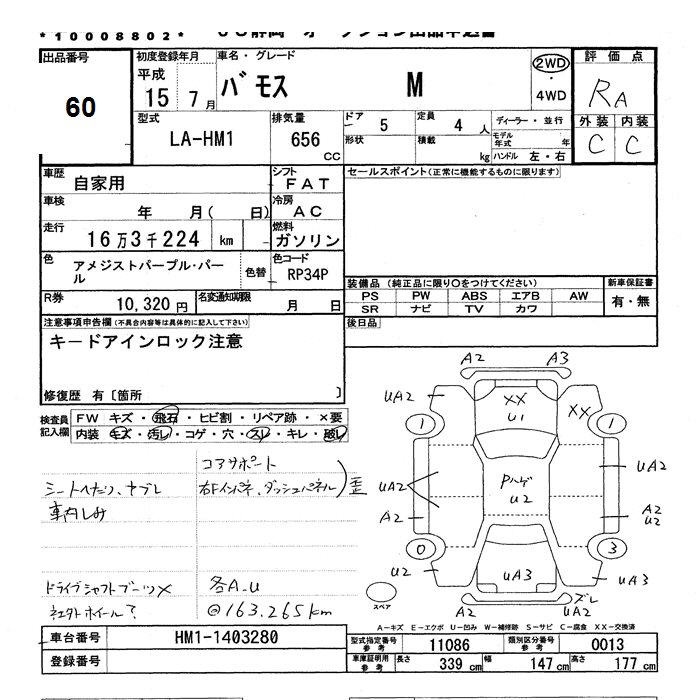 *10008802*
出品番号
60
初度登録年月
平成
15 7月
車名・グレード
バモス M
2WD
・
4WD
評価点
RA
外装 内装
C C
型式
LA-HM1
排気量
656
CC
ドア
5
定員
4 人
形状
積載
kg
ディーラー・並行
モデル年式 年
ハンドル 左・右
車歴
自家用
シフト
FAT
車検
年 月( 日)
冷房
AC
走行
16万3千224 km
燃料
ガソリン
色
アメジストパープル・パール
色替
色コード
RP34P
R券
10,320円
名変通知期限
月 日
セールスポイント(正常に機能するものに限ります)
装備品(純正品に限り○をつけてください)
PS PW ABS エアB AW
SR ナビ TV カワ
新車保証書
有・無
後日品
注意事項申告欄(不具合内容等は具体的に記入して下さい)
キードアインロック注意
修復歴 有〔箇所 〕
検査員記入欄
FW キズ・飛石・ヒビ割・リペア跡・×要
内装 キズ・汚レ・コゲ・穴・スレ・キレ・破レ
コアサポート
右Fインパネ、ダッシュパネル)歪
シートへたり、ヤブレ
車内しみ
ドライブシャフトブーツ×
社外ホイール?
各A.U
@163.265km
A2 A3
UA2
XX
U1
XX
1
1
UA2
Pハゲ
U2
UA2
A2
A2
U2
0
3
U2
UA3
UA3
スペア
A2
UA2
ズレ
A-キズ E-エクボ U-凹み W-補修跡 S-サビ C-腐食 XX-交換済
車台番号
HM1-1403280
登録番号
型式指定番号
参考
11086
類別区分番号
参考
0013
車庫証明用
参考
長さ 339 cm
幅 147 cm
高さ 177 cm